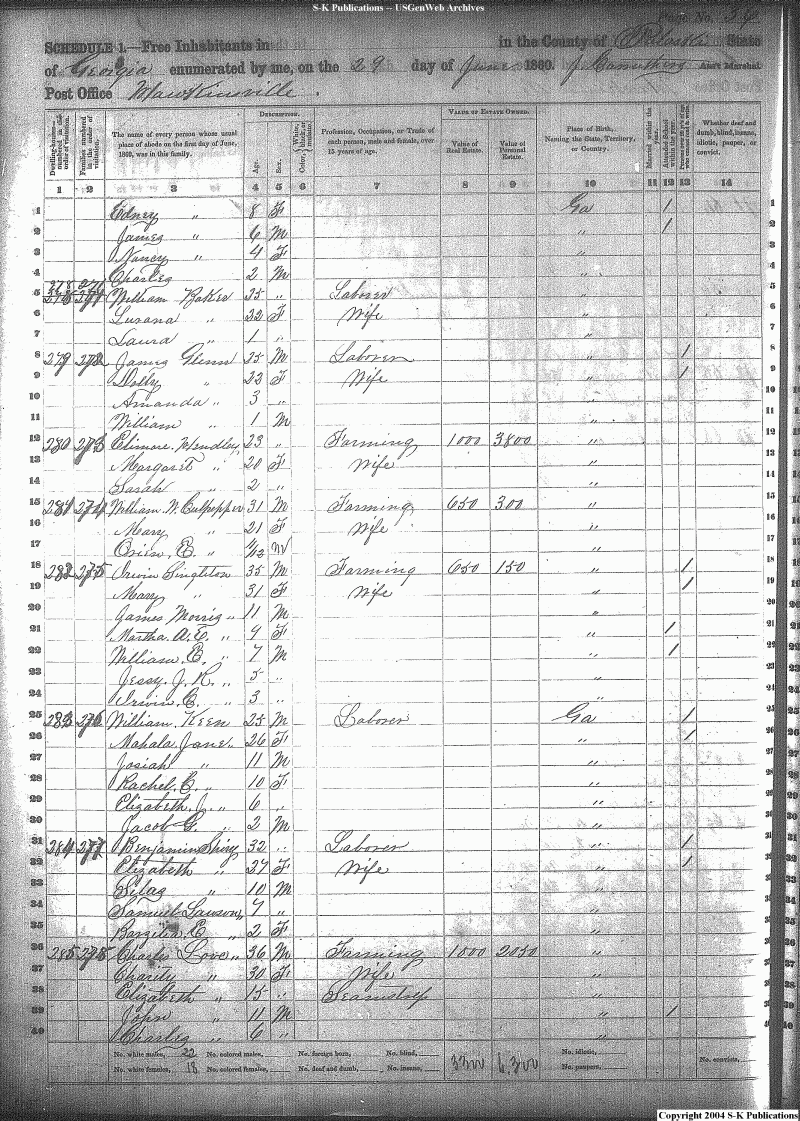 S-K Publications -- USGenWeb Archives
Page No. 36
SCHEDULE 1.—Free Inhabitants in in the County of Pulaski State
of Georgia enumerated by me, on the 29 day of June 1860. Ass't Marshal
Post Office Hawkinsville.
DESCRIPTION. VALUE OF ESTATE OWNED.
Dwelling-houses—numbered in the order of visitation. Families numbered in the order of visitation. The name of every person whose usual place of abode on the first day of June, 1860, was in this family. Age. Sex. Color, White, black, or mulatto. Profession, Occupation, or Trade of each person, male and female, over 15 years of age. Value of Real Estate. Value of Personal Estate. Place of Birth, Naming the State, Territory, or Country. Married within the year. Attended School within the year. Whether deaf and dumb, blind, insane, idiotic, pauper, or convict.
1 2 3 4 5 6 7 8 9 10 11 12 13 14
1 Edney " 8 F Ga / 1
2 James " 6 M " / 2
3 Nancy " 4 F " 3
4 Charles 2 M " 4
5 278 271 William Baker 25 " Laborer " 5
6 Lusana " 22 F Wife " 6
7 Laura " 1 " " 7
8 279 272 James Glenn 25 M Laborer " / 8
9 Dolly " 22 F Wife " / 9
10 Amanda " 3 " " 10
11 William " 1 M " 11
12 280 273 Wendley 23 " Farming 1000 3800 " 12
13 Margaret " 20 F Wife " 13
14 Sarah " 2 " " 14
15 281 274 William W. Culpepper 31 M Farming 650 300 " 15
16 Mary " 21 F Wife " 16
17 E. " /12 M " 17
18 282 275 Irwin Singleton 35 M Farming 650 150 " / 18
19 Mary " 31 F Wife " / 19
20 James Morris " 11 M " 20
21 Martha A.E. " 9 F " / 21
22 William E. " 7 M " / 22
23 Jessy J. R. " 5 " " 23
24 Irwin C. " 3 " " 24
25 283 276 William Keen 25 M Laborer Ga / 25
26 Mahala Jane " 26 F " / 26
27 Josiah " 11 M " 27
28 Rachel C. " 10 F " 28
29 Elizabeth J. " 6 " " 29
30 Jacob G. " 2 M " 30
31 284 277 Benjamin 32 " Laborer " / 31
32 Elizabeth " 27 F Wife " / 32
33 Silas " 10 M " 33
34 Samuel Lawson " 7 " " 34
35 E " 2 F " 35
36 285 278 Charles Love " 36 M Farming 1000 2050 " 36
37 Charity " 30 F Wife " 37
38 Elizabeth " 15 " Seamstress " 38
39 John " 11 M " / 39
40 Charles " 6 " " 40
No. white males, 22 No. colored males, No. foreign born, No. blind, 3300 6,300 No. idiotic, No. convicts,
No. white females, 18 No. colored females, No. deaf and dumb, No. insane, No. paupers,
Copyright 2004 S-K Publications